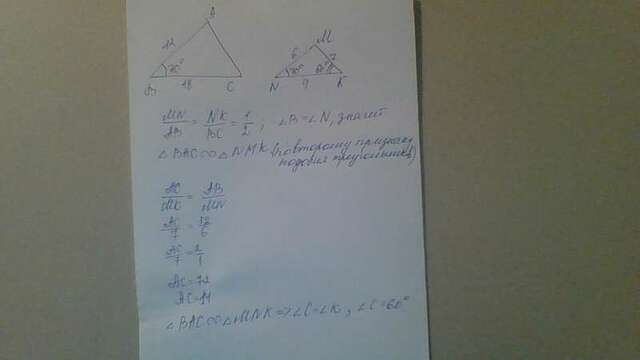 A
12
70°
B
18
C
M
6
7
70°
60°
N
9
K
MN/AB = NK/BC = 1/2 ; ∠B = ∠N, значит
△BAC ∾ △NMK (по второму признаку
подобия треугольников)
AC/MK = AB/MN
AC/7 = 12/6
AC/7 = 2/1
AC = 7·2
AC = 14
△BAC ∾ △MNK => ∠C = ∠K, ∠C = 60°